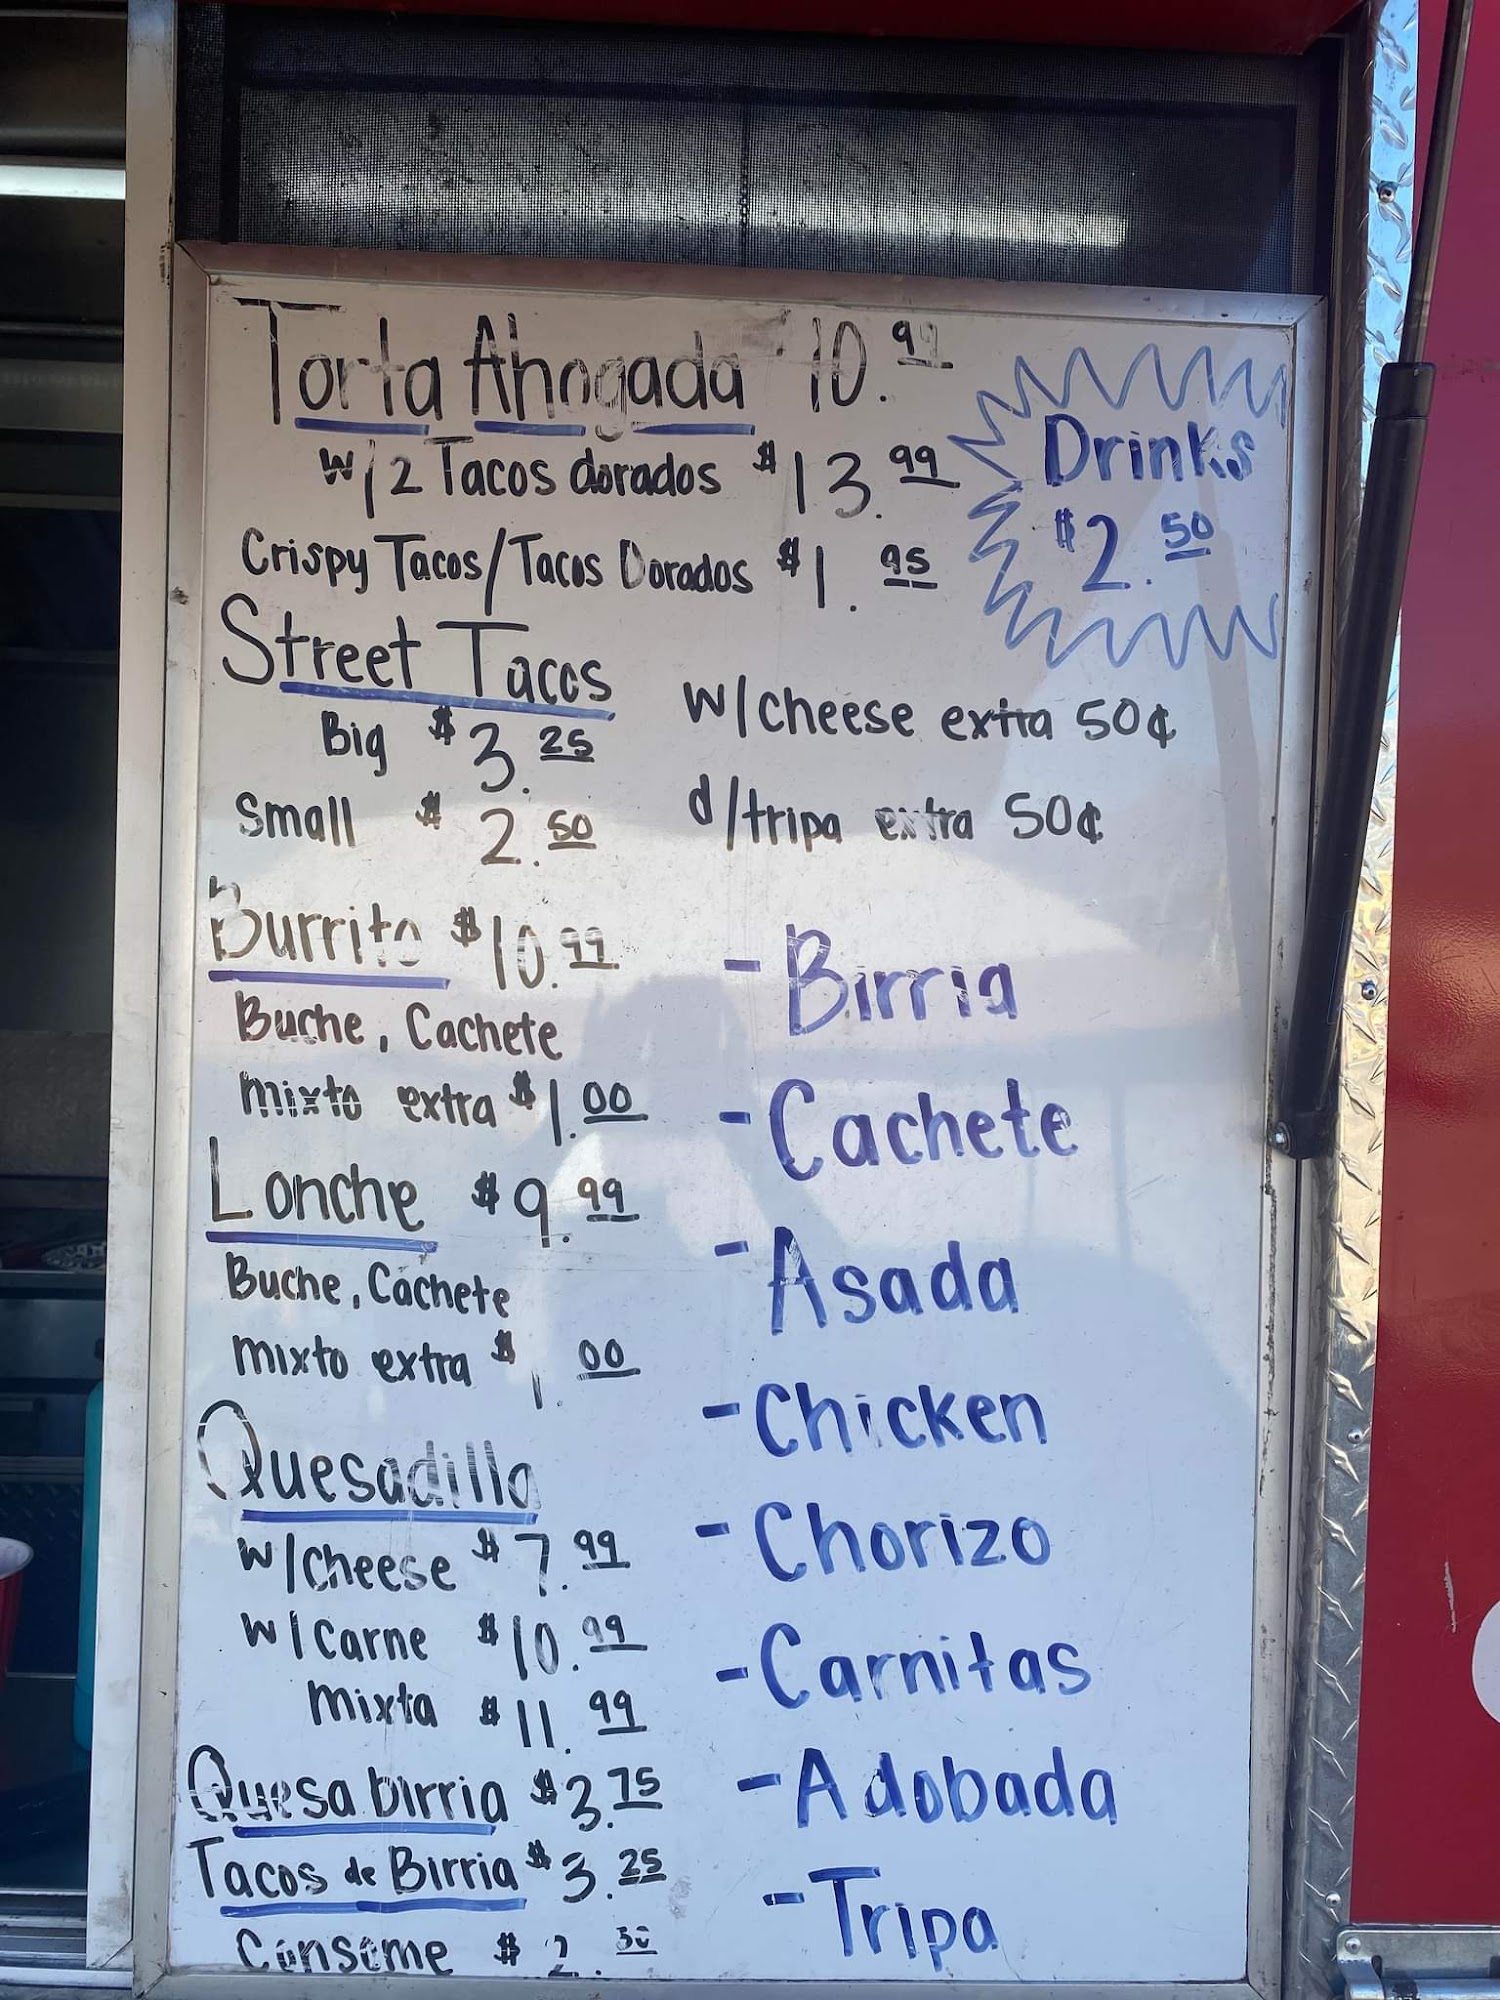 Torta Ahogada 10.99
w/2 Tacos dorados $13.99
Drinks
$2.50
Crispy Tacos/Tacos Dorados $1.95
Street Tacos
Big $3.25
w/cheese extra 50¢
Small $2.50
d/tripa extra 50¢
Burrito $10.99
Buche, Cachete
mixto extra $1.00
Lonche $9.99
Buche, Cachete
mixto extra $1.00
Quesadilla
w/cheese $7.99
w/carne $10.99
mixta $11.99
Quesabirria $3.75
Tacos de Birria $3.25
Conseme $2.50
- Birria
- Cachete
- Asada
- Chicken
- Chorizo
- Carnitas
- Adobada
- Tripa